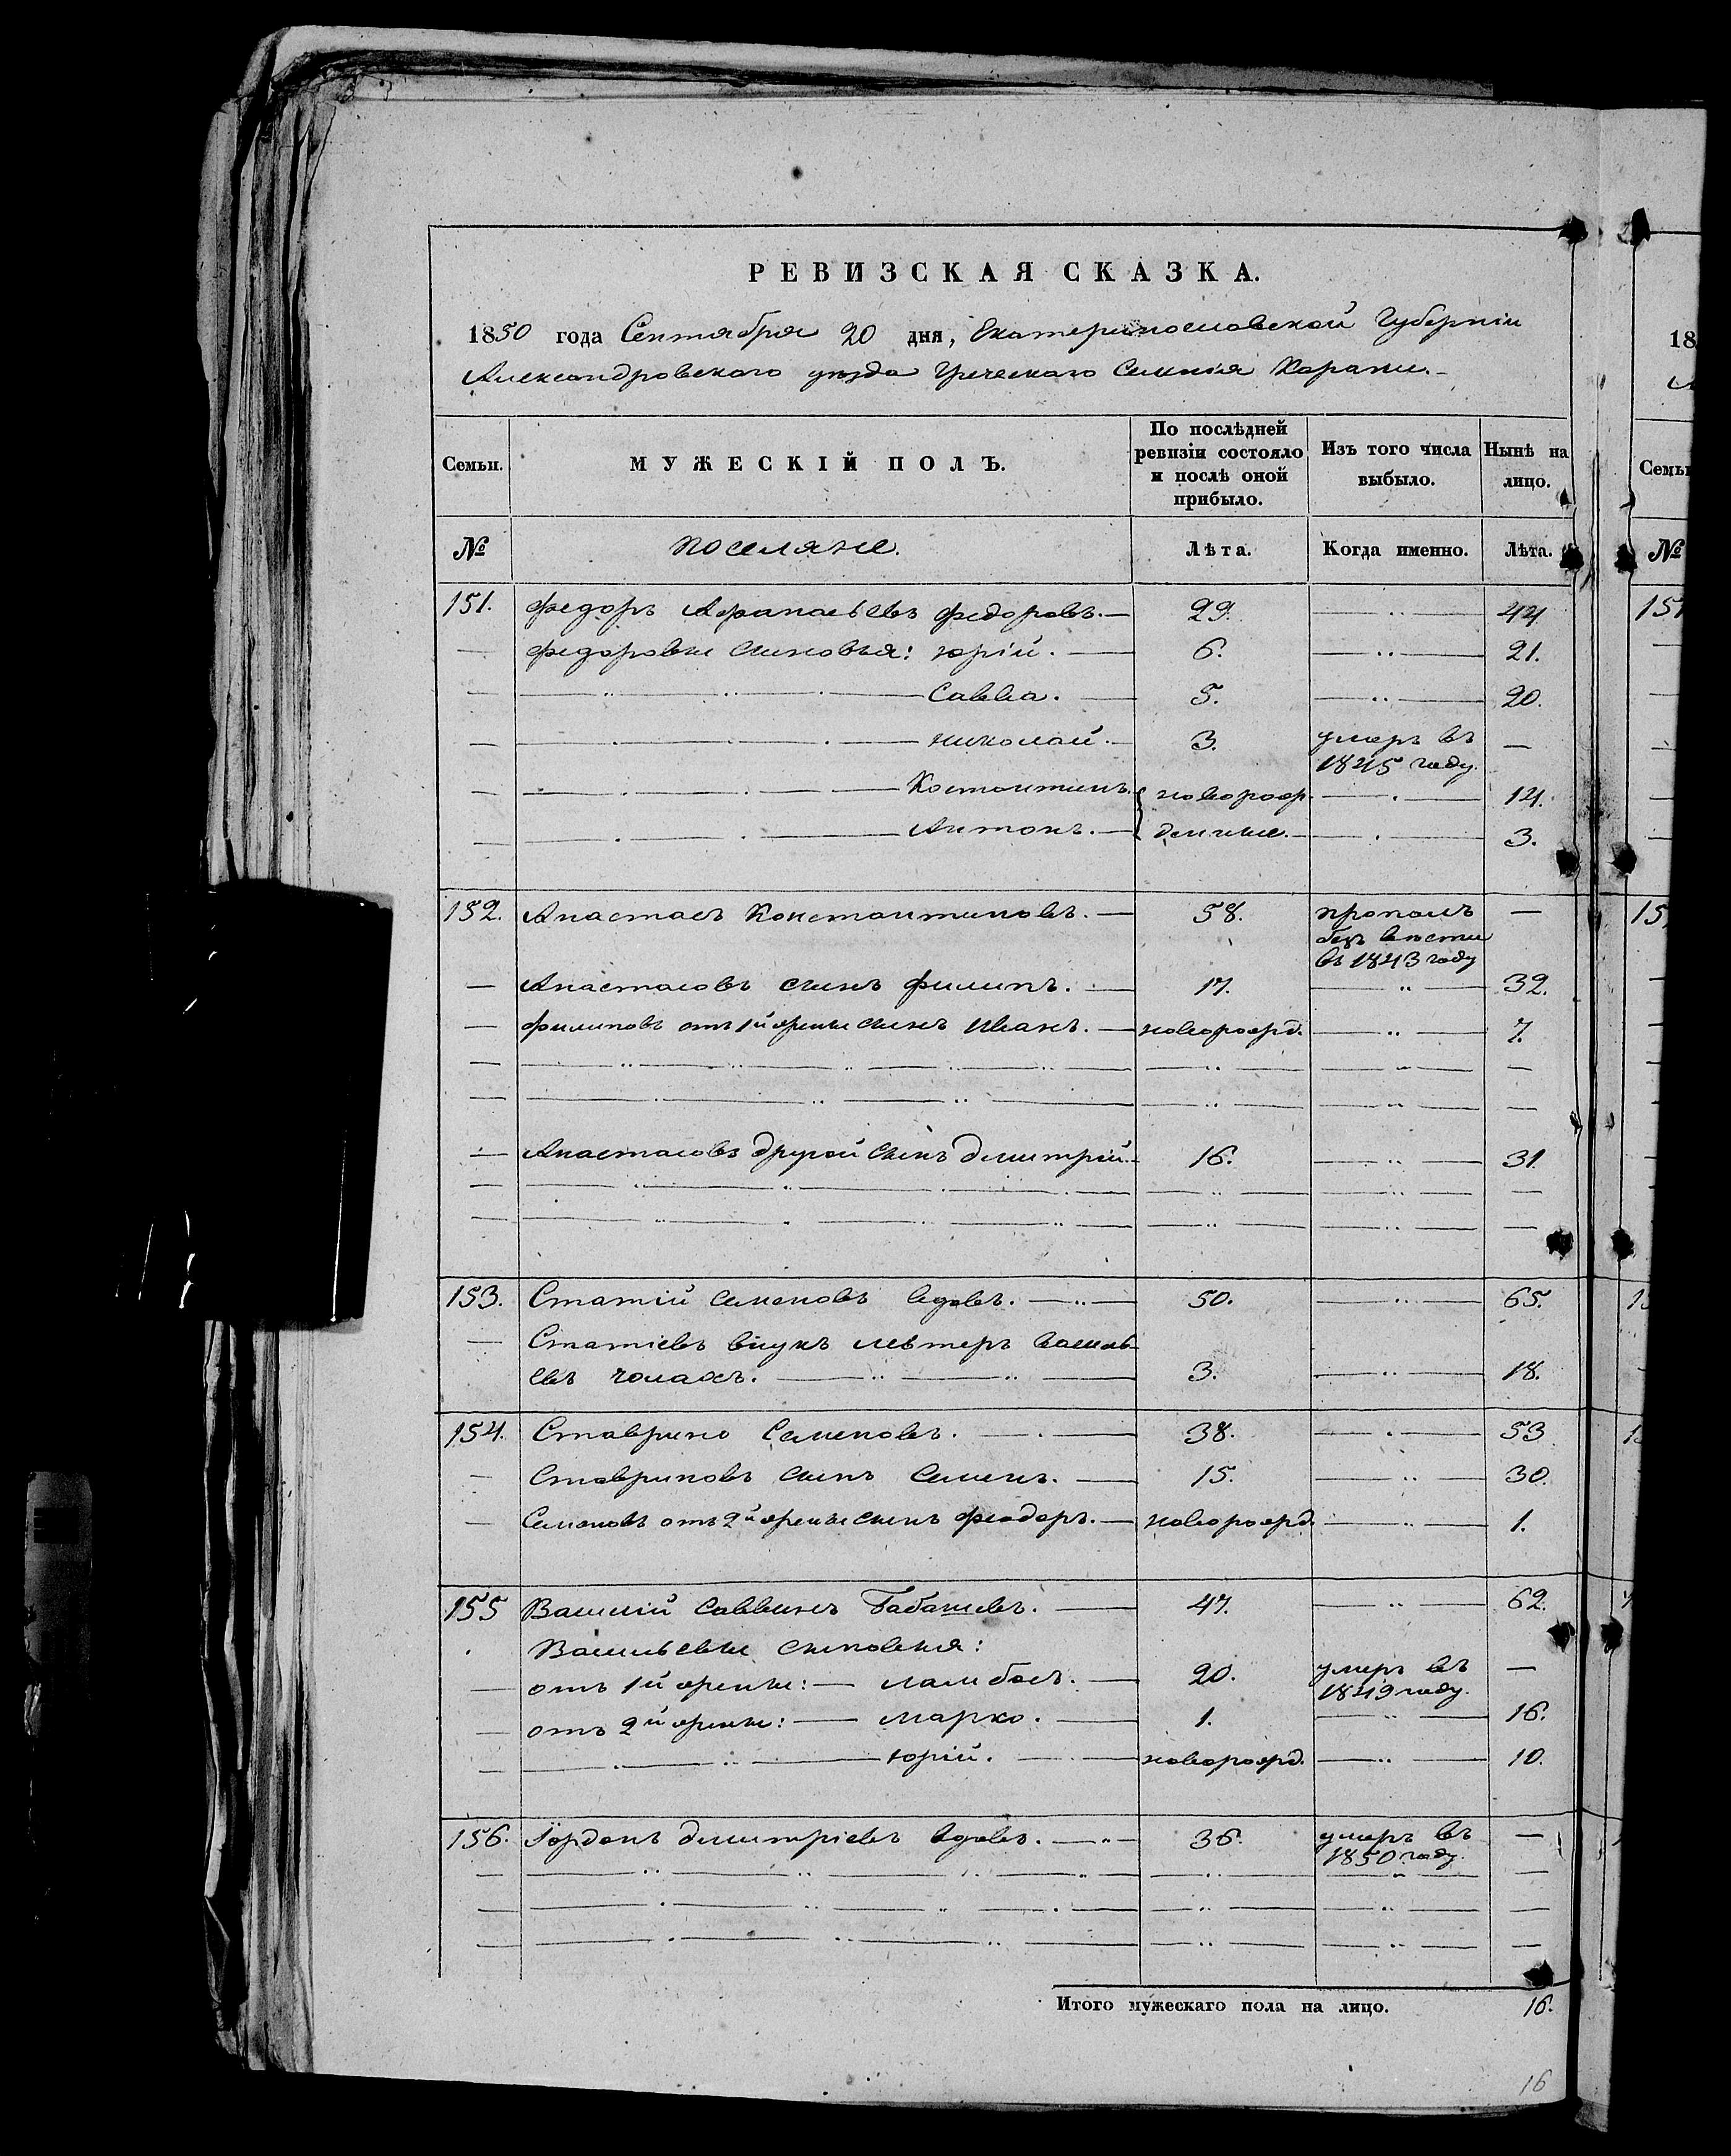 РЕВИЗСКАЯ СКАЗКА.
1850 года Сентября 20 дня, Екатеринославской Губерніи
Александровскаго уѣзда Греческаго Селенія Карани.
Семьи. МУЖЕСКІЙ ПОЛЪ. По послѣдней ревизіи состояло и послѣ оной прибыло. Изъ того числа выбыло. Нынѣ на лицо.
№ Поселяне. Лѣта. Когда именно. Лѣта.
151. Федоръ Афанасьевъ Федоровъ. 29. 44
Федоровы сыновья: Юрій. 6. 21.
Савва. 5. 20.
Николай. 3. умеръ въ
1845 году.
Костантинъ. новорож- 14.
Антонъ. денные. 3.
152. Анастасъ Константиновъ. 58. пропалъ
безъ вѣсти
въ 1843 году
Анастасовъ сынъ Филипъ. 17. 32.
Филиповъ отъ 1й жены сынъ Иванъ. новорожд. 7.
Анастасовъ другой сынъ Дмитрій. 16. 31.
153. Статій Семеновъ вдовъ. 50. 65.
Статіевъ внукъ Левтеръ Василь-
евъ Чолахъ. 3. 18.
154. Ставрино Семеновъ. 38. 53
Ставриновъ сынъ Семенъ. 15. 30.
Семеновъ отъ 2й жены сынъ Феодоръ. новорожд. 1.
155 Василій Саввинъ Бабашевъ. 47. 62.
Васильевы сыновья:
отъ 1й жены: Ламбось. 20. умеръ въ
1849 году.
отъ 2й жены: Марко. 1. 16.
Юрій. новорожд. 10.
156. Іорданъ Дмитріевъ вдовъ. 36. умеръ въ
1850 году.
Итого мужескаго пола на лицо. 16.
16
18
Семьи
№
151